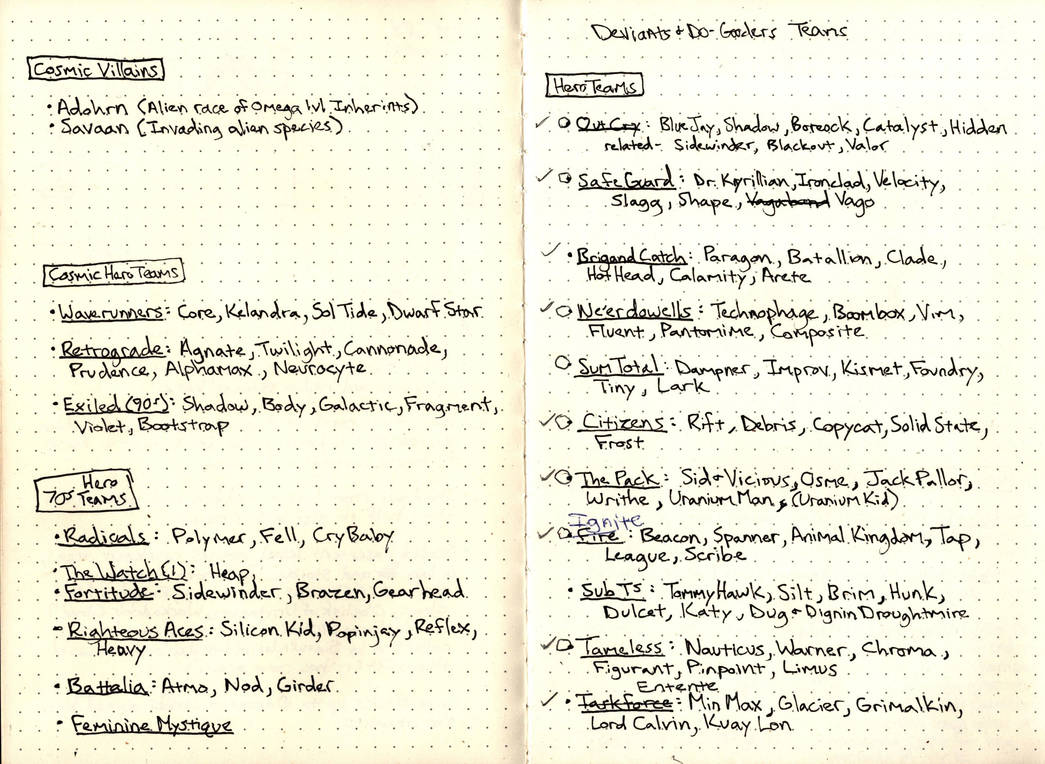 Cosmic Villains
• Adohrn (Alien race of Omega lvl Inherints)
• Savaan (Invading alien species)
Cosmic Hero Teams
• Waverunners: Core, Kelandra, Sol Tide, Dwarf Star
• Retrograde: Agnate, Twilight, Cannonade,
Prudence, Alphamax, Neurocyte
• Exiled (90s): Shadow, Body, Galactic, Fragment,
Violet, Bootstrap
Hero
70s Teams
• Radicals: Polymer, Fell, Cry Baby
• The Watch (1): Heap,
• Fortitude: Sidewinder, Brazen, Gearhead
• Righteous Aces: Silicon Kid, Popinjay, Reflex,
Heavy
• Battalia: Atma, Nod, Girder
• Feminine Mystique
Deviants & Do-Gooders Teams
Hero Teams
✓ OutCry: Blue Jay, Shadow, Boreock, Catalyst, Hidden
related- Sidewinder, Blackout, Valor
✓ SafeGuard: Dr. Kyrillian, Ironclad, Velocity,
Slagg, Shape, Vagabond Vago
✓ • Brigand Catch: Paragon, Batallion, Clade,
Hot Head, Calamity, Arete
✓ Ne'erdowells: Technophage, Boombox, Vim,
Fluent, Pantomime, Composite
Sum Total: Dampner, Improv, Kismet, Foundry,
Tiny, Lark
✓ Citizens: Rift, Debris, Copycat, Solid State,
Frost
✓ The Pack: Sid & Vicious, Osme, Jack Pallor,
Writhe, Uranium Man, (Uranium Kid)
Ignite
✓ Fire: Beacon, Spanner, Animal Kingdom, Tap,
League, Scribe
• Sub Ts: Tommy Hawk, Silt, Brim, Hunk,
Dulcet, Katy, Dug & Dignin Droughtmire
✓ Tameless: Nauticus, Warner, Chroma,
Figurant, Pinpoint, Limus
Entente
✓ • Taskforce: Min Max, Glacier, Grimalkin,
Lord Calvin, Kuay Lon